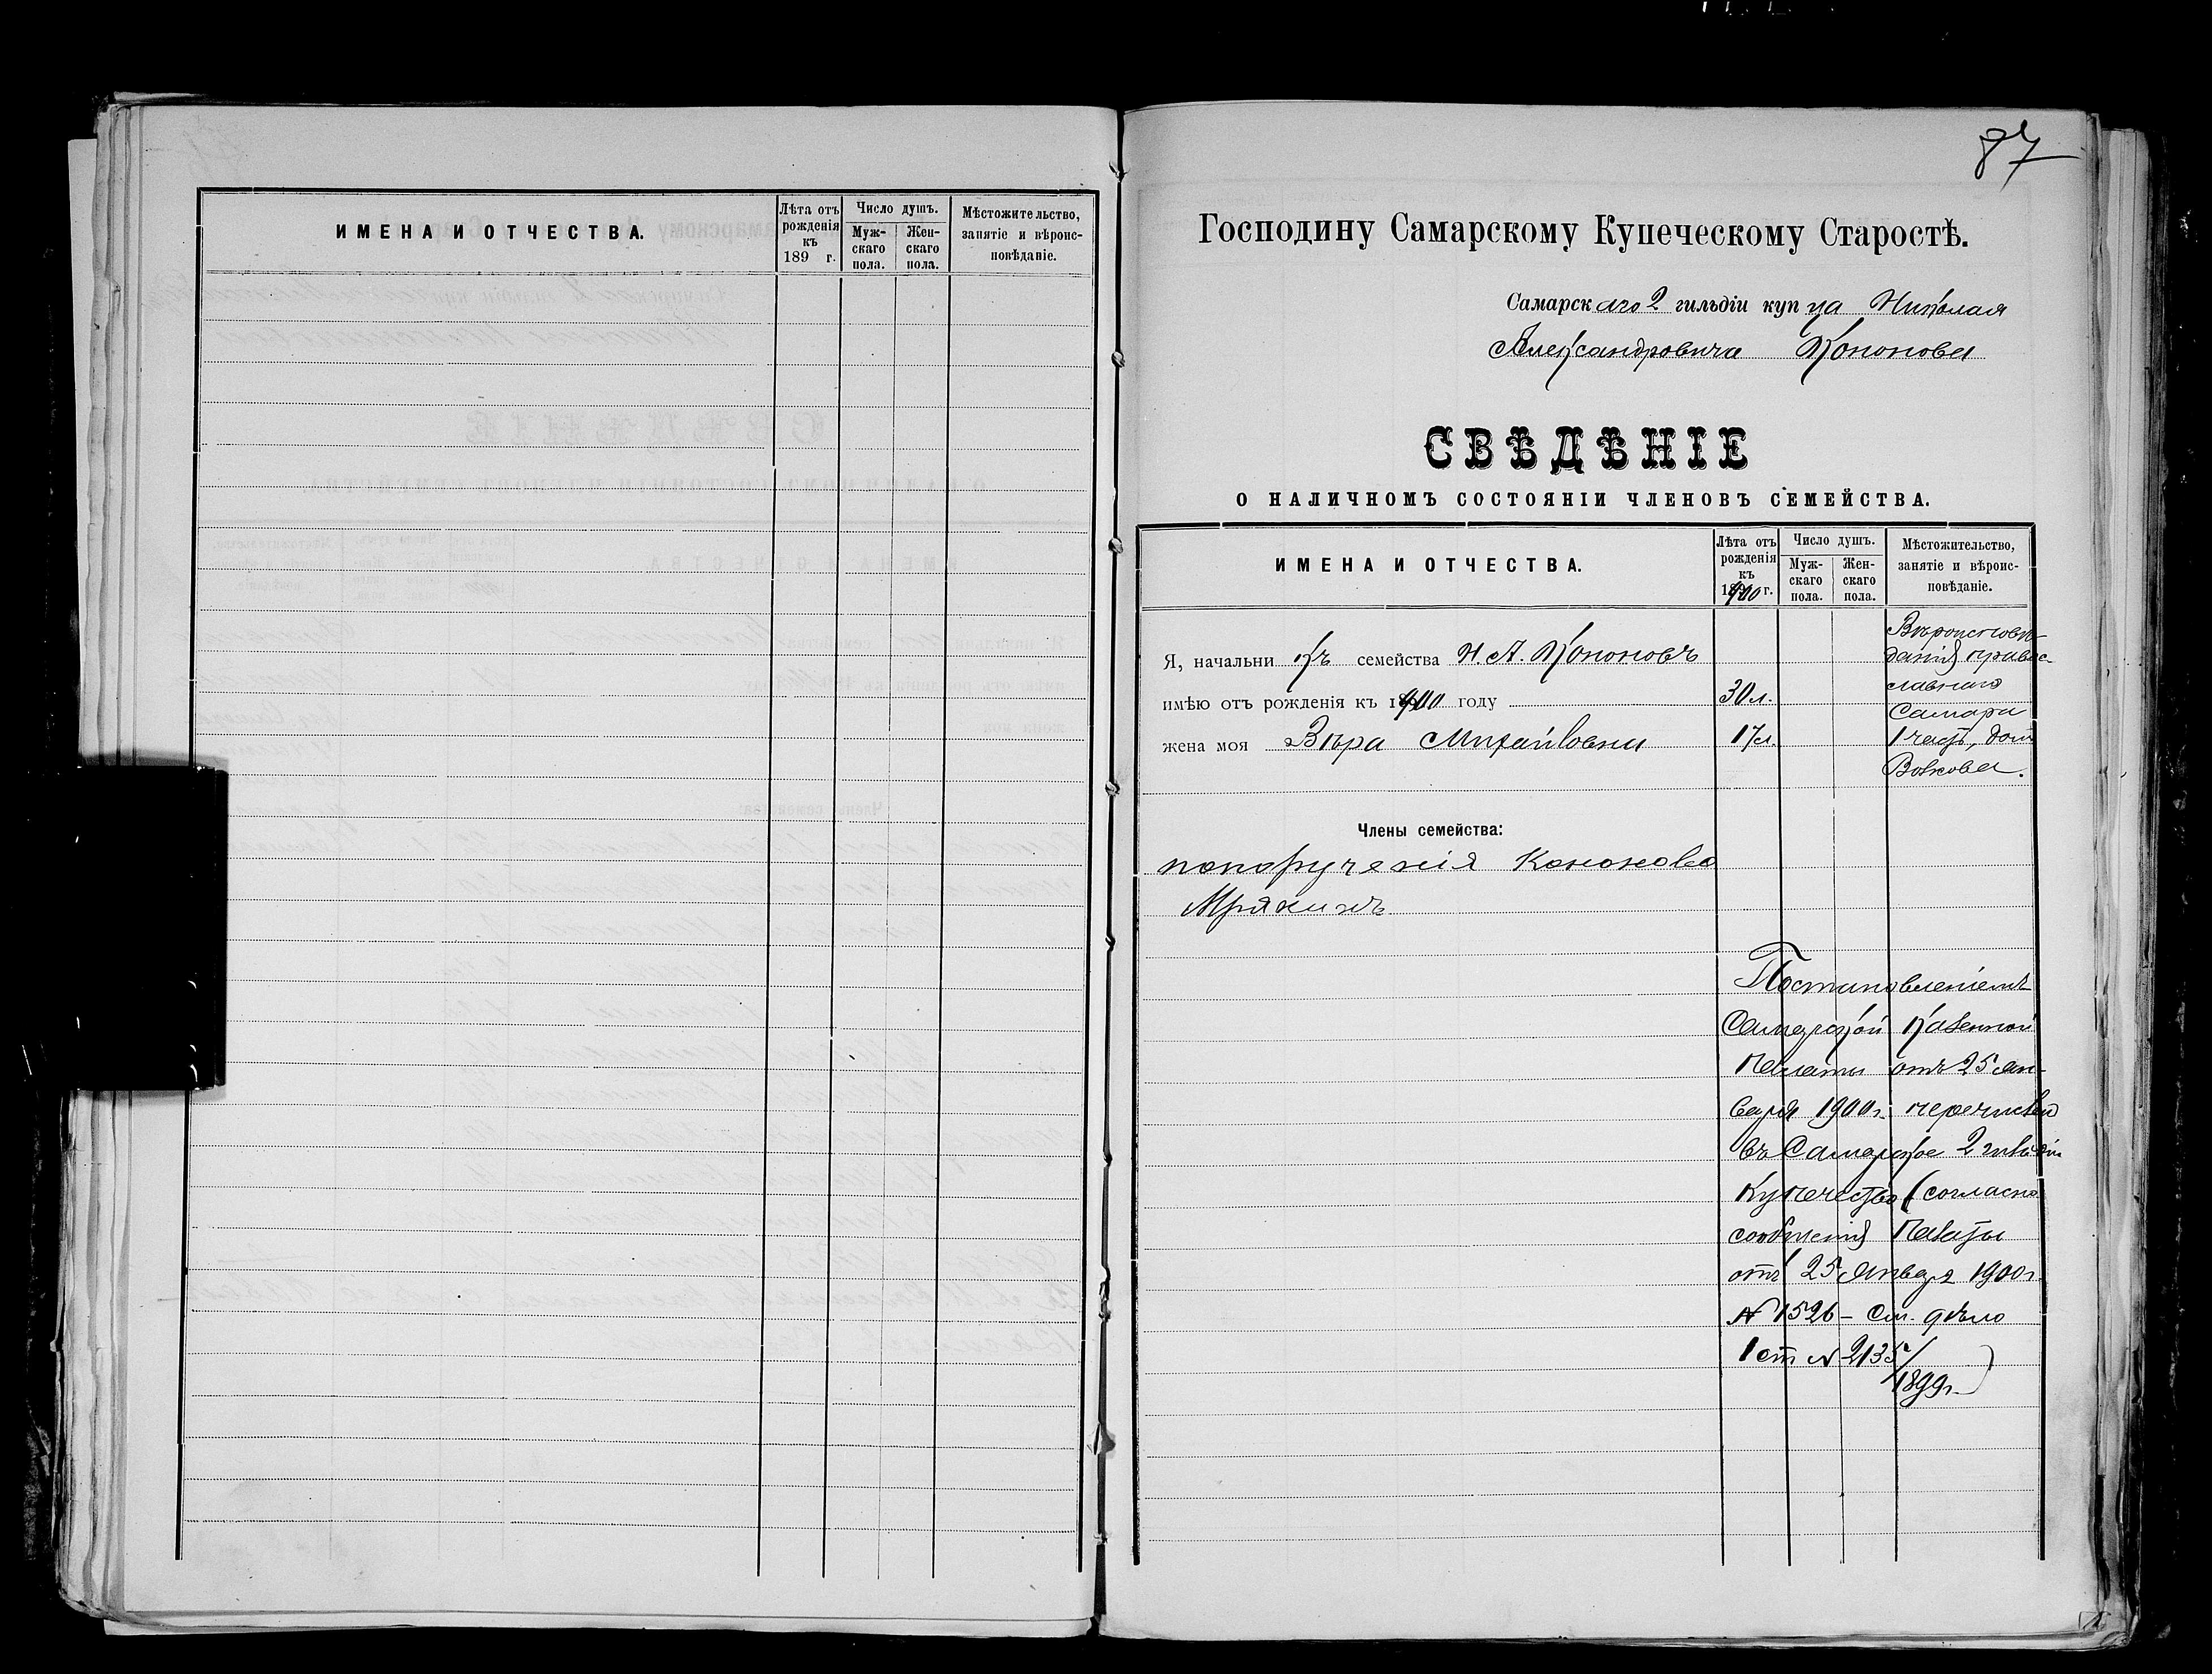 ИМЕНА И ОТЧЕСТВА.
Лѣта отъ рожденія къ 189 г.
Число душъ.
Муж-скаго пола.
Жен-скаго пола.
Мѣстожительство, занятіе и вѣроис-повѣданіе.
87
Господину Самарскому Купеческому Старостѣ.
Самарскаго 2 гильдіи купца Николая
Александровича Кононова
СВѢДѢНІЕ
О НАЛИЧНОМЪ СОСТОЯНІИ ЧЛЕНОВЪ СЕМЕЙСТВА.
ИМЕНА И ОТЧЕСТВА.
Лѣта отъ рожденія къ 1900 г.
Число душъ.
Муж-скаго пола.
Жен-скаго пола.
Мѣстожительство, занятіе и вѣроис-повѣданіе.
Я, начальникъ семейства Н. А. Кононовъ
имѣю отъ рожденія къ 1900 году 30 л.
жена моя Вѣра Михайловна 17 л.
Вѣроисповѣ-
данія правос-
лавнаго
Самара
1 часть, домъ
Волкова.
Члены семейства:
попорученія Кононова
Мрякинъ
Постановленіемъ
Самарской Казенной
Палаты отъ 25 ян-
варя 1900 г. перечисленъ
въ Самарское 2 гильдіи
Купечество (согласно
сообщенія Палаты
отъ 25 Января 1900 г.
№ 1526 - см. дѣло
1 ст № 2135/
1899 г.)